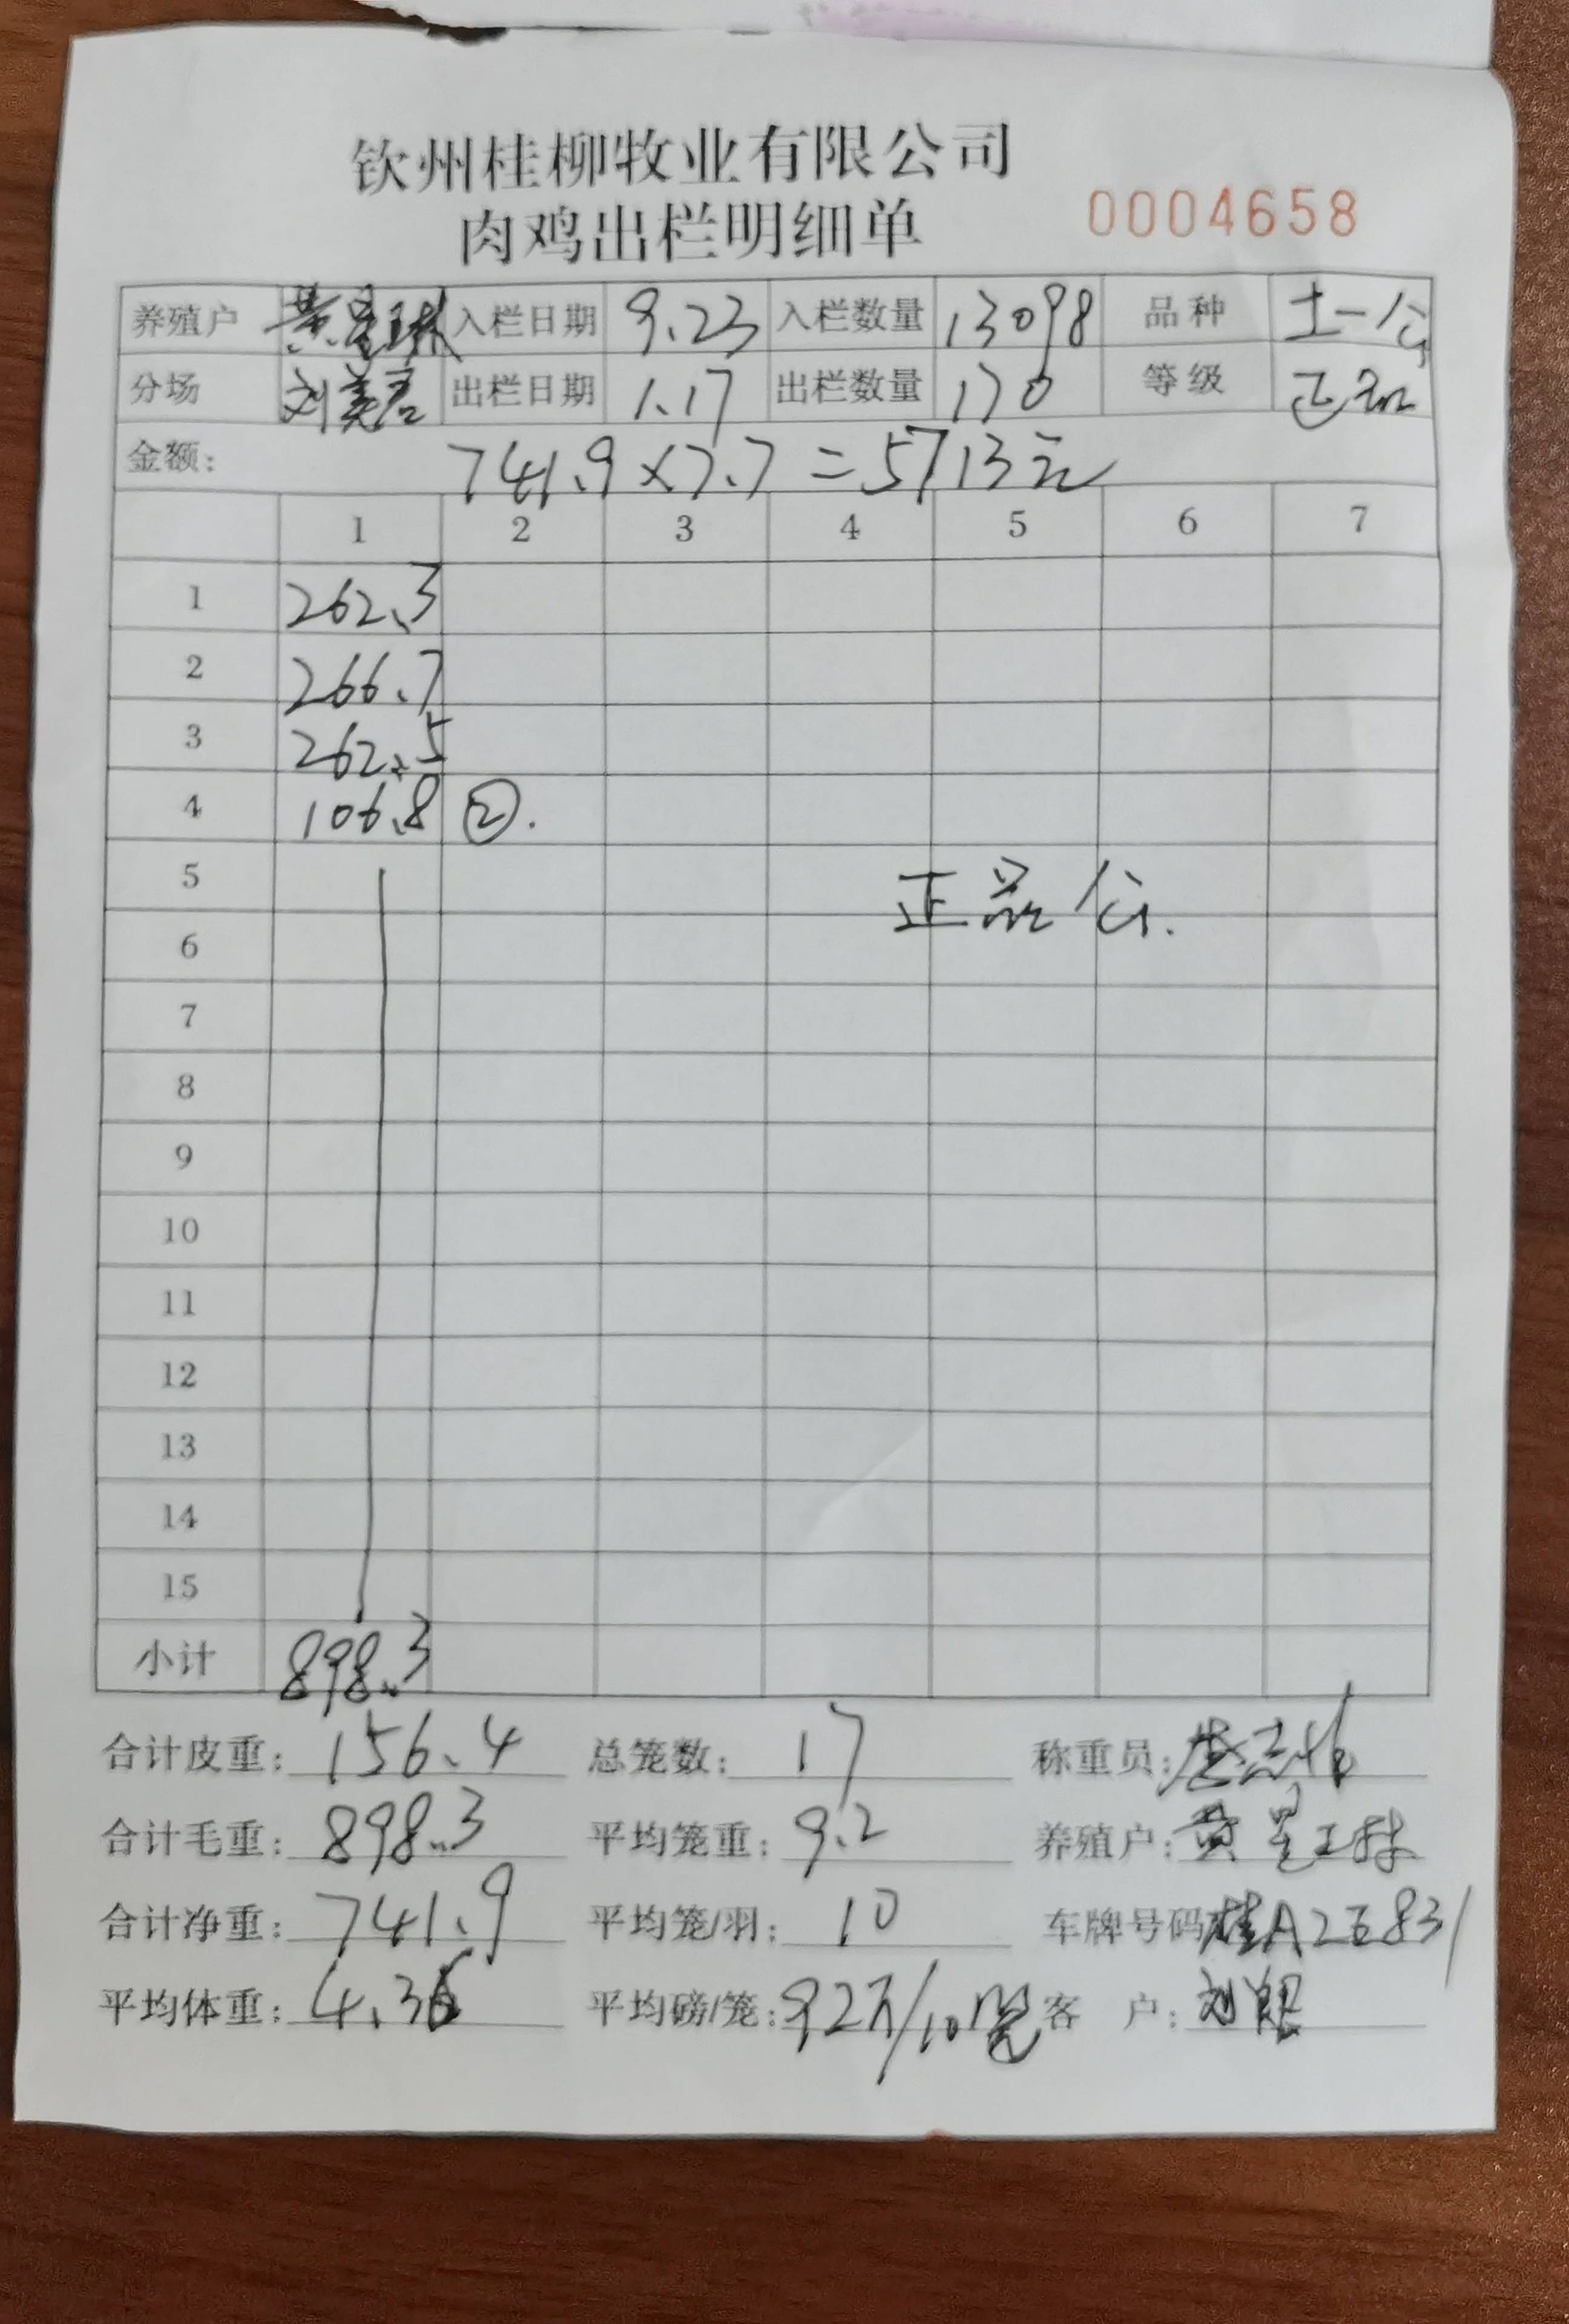 钦州桂柳牧业有限公司
肉鸡出栏明细单 0004658
养殖户 黄星琳 入栏日期 9.23 入栏数量 13098 品种 土一公
分场 刘美君 出栏日期 1.17 出栏数量 170 等级 正品
金额: 741.9×7.7=5713元
1 2 3 4 5 6 7
1 262.3
2 266.7
3 262.5
4 106.8 ②.
5
正品公.
6
7
8
9
10
11
12
13
14
15
小计 898.3
合计皮重: 156.4 总笼数: 17 称重员:
合计毛重: 898.3 平均笼重: 9.2 养殖户: 黄星琳
合计净重: 741.9 平均笼/羽: 10 车牌号码 桂A2E831
平均体重: 4.36 平均磅/笼: 92斤/10笼 客 户: 刘